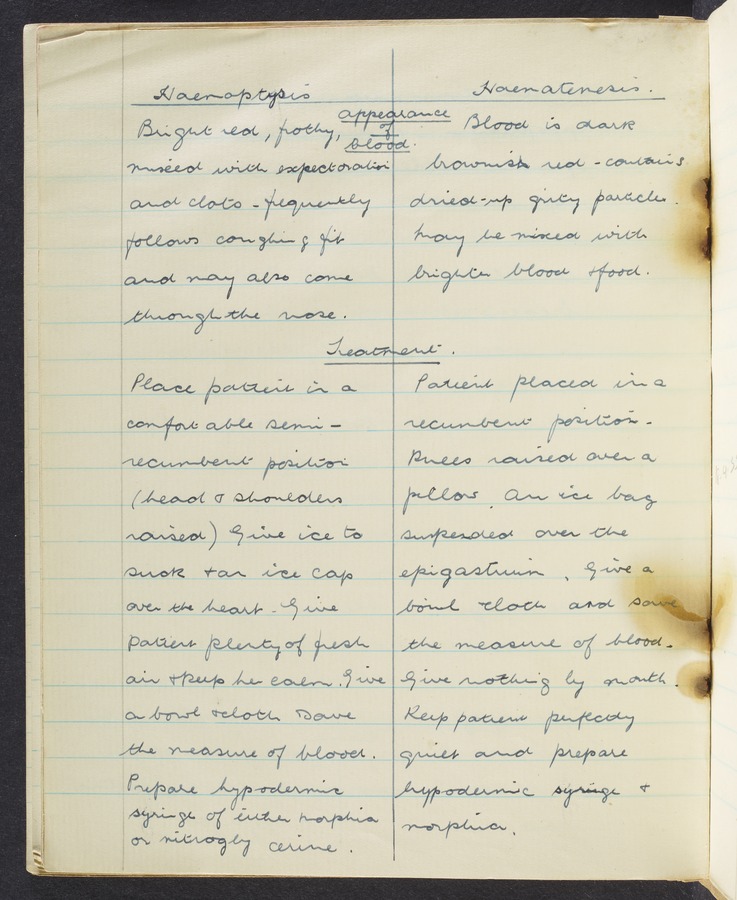 Haemoptysis
Bright red, frothy,
mixed with expectoration
and clots - frequently
follows coughing fit
and may also come
through the nose.
appearance
of
blood.
Haematemesis.
Blood is dark
brownish red - contains
dried-up gritty particles.
May be mixed with
brighter blood & food.
Treatment.
Place patient in a
comfortable semi-
recumbent position
(head & shoulders
raised) Give ice to
suck & an ice cap
over the heart. Give
patient plenty of fresh
air & keep her calm. Give
a bowl & cloth save
the measure of blood.
Prepare hypodermic
syringe of either morphia
or nitrogly cerine.
Patient placed in a
recumbent position.
Knees raised over a
pillow. An ice bag
suspended over the
epigastrium. Give a
bowl & cloth and save
the measure of blood.
Give nothing by mouth.
Keep patient perfectly
quiet and prepare
hypodermic syringe &
morphia.